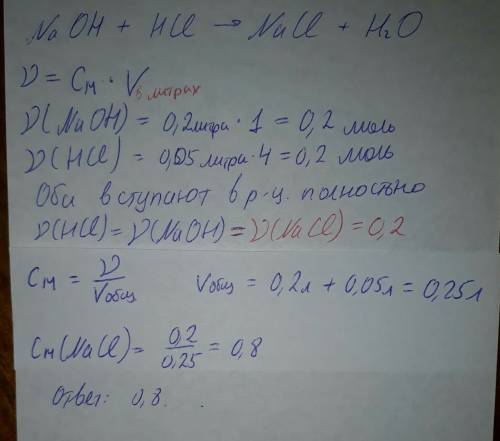 NaOH + HCl → NaCl + H₂O
ν = Cм · V в литрах
ν(NaOH) = 0,2 литра · 1 = 0,2 моль
ν(HCl) = 0,05 литра · 4 = 0,2 моль
Оба вступают в р-ц. полностью
ν(HCl) = ν(NaOH) = ν(NaCl) = 0,2
Cм = ν / Vобщ Vобщ = 0,2л + 0,05л = 0,25л
Cм(NaCl) = 0,2 / 0,25 = 0,8
Ответ: 0,8.